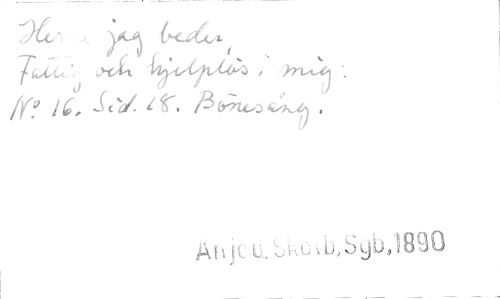 Herre jag beder,
Fattig och hjelplös i mig:
No 16. Sid. 18. Bönesång.
Anjou, Skolb, Sgb, 1890